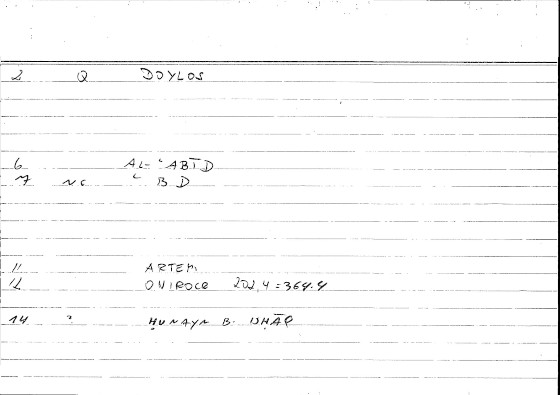 2 Q DOYLOS
6 AL-ʿABĪD
7 NC ʿBD
11 ARTEM
12 ONIROCR 202,4 = 364.4
14 ḤUNAYN B. ISḤĀQ